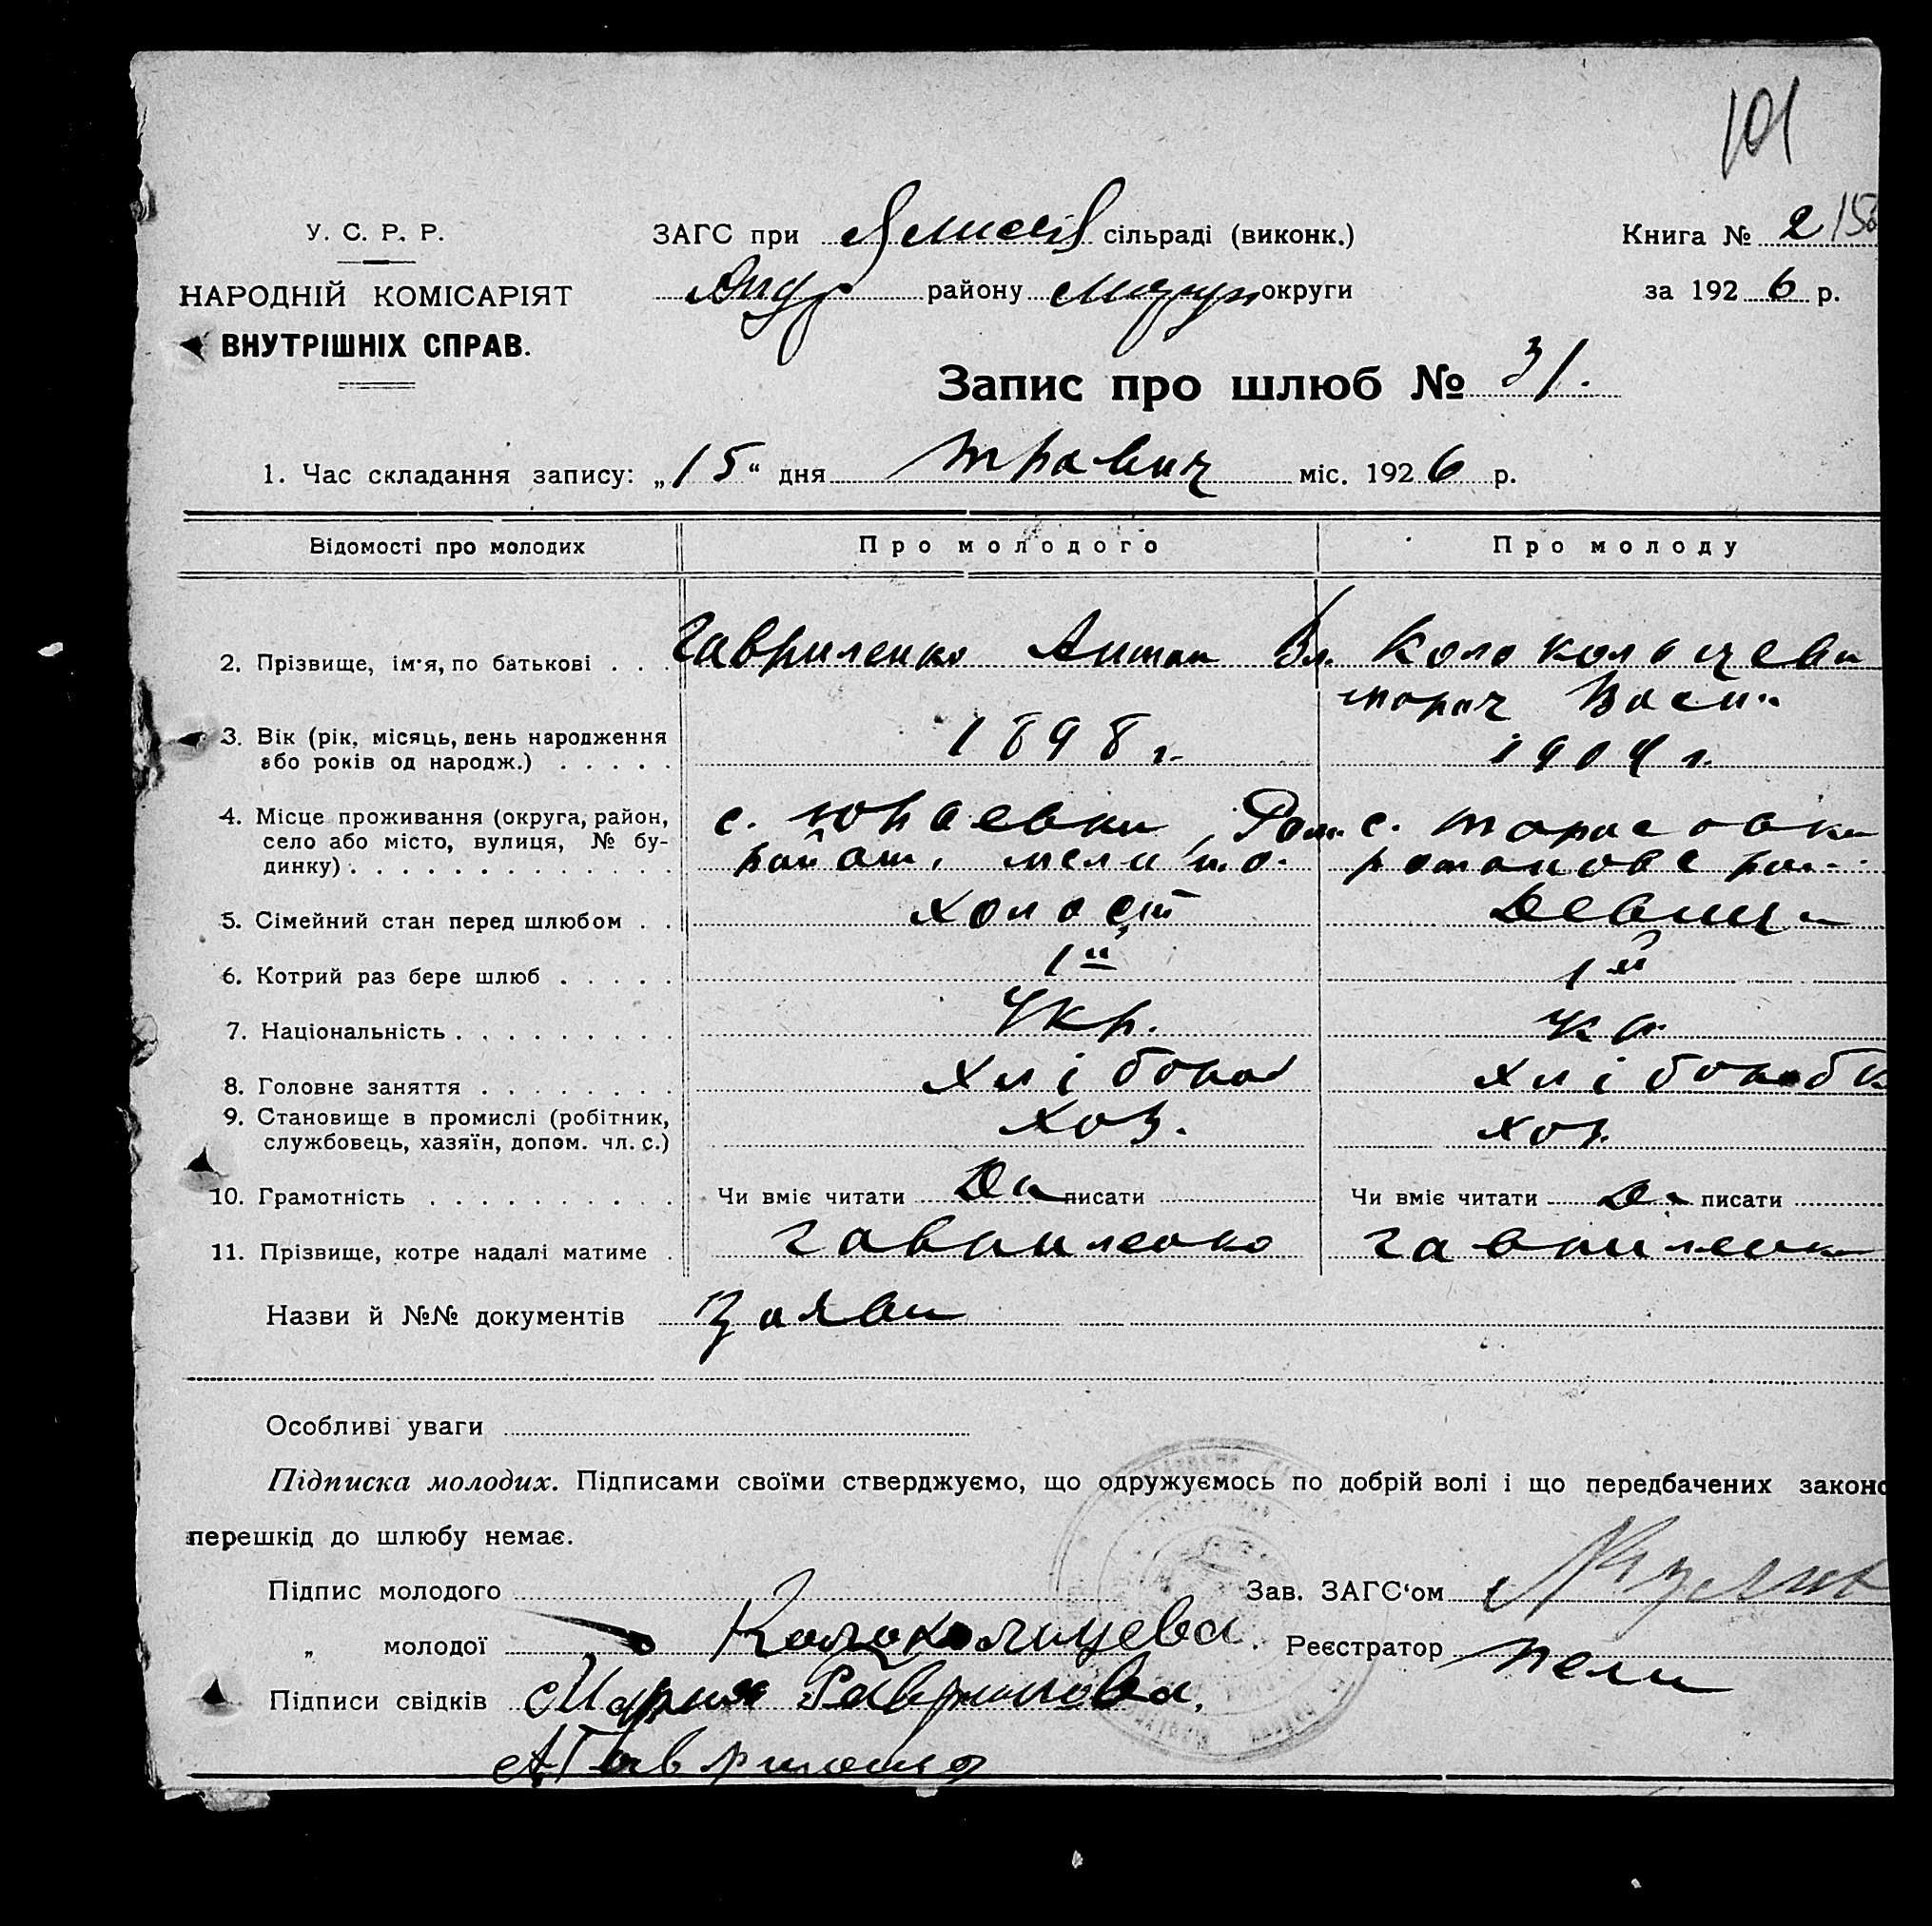 101
У. С. Р. Р.
НАРОДНІЙ КОМІСАРІЯТ
ВНУТРІШНІХ СПРАВ.
ЗАГС при сільраді (виконк.)
району округи
Книга № 2
за 1926 р.
Запис про шлюб № 31.
1. Час складання запису: „15“ дня міс. 1926 р.
Відомості про молодих Про молодого Про молоду
2. Прізвище, ім'я, по батькові . . . Гавриленко Антон Вл. Колокольцева
3. Вік (рік, місяць, день народження
або років од народж.) . . . . . 1898 г. 1904 г.
4. Місце проживання (округа, район,
село або місто, вулиця, № бу-
динку) . . . . . . . . . . . . с. Юраевки с. Тарасовки
5. Сімейний стан перед шлюбом . . Холост Девица
6. Котрий раз бере шлюб . . . . . 1й 1й
7. Національність . . . . . . . . . Укр. Укр.
8. Головне заняття . . . . . . . . Хлібороб Хліборобка
9. Становище в промислі (робітник,
службовець, хазяїн, допом. чл. с.) Хоз. Хоз.
10. Грамотність . . . . . . . . . . Чи вміє читати Да писати Чи вміє читати Да писати
11. Прізвище, котре надалі матиме . Гавриленко Гавриленко
Назви й №№ документів Заяви
Особливі уваги
Підписка молодих. Підписами своїми стверджуємо, що одружуємось по добрій волі і що передбачених законо
перешкід до шлюбу немає.
Підпис молодого Зав. ЗАГС‘ом
„ молодої Колокольцева. Реєстратор
Підписи свідків Мария Гаврилова,